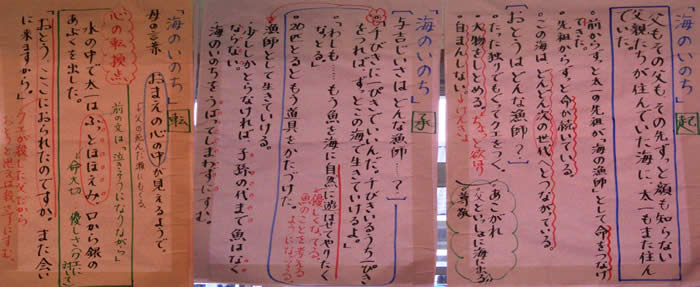 「海のいのち」
起
父もその父も、その先ずっと顔も知らない
父親たちが住んでいた海に、太一もまた住ん
でいた。
・前からずっと太一の先祖が海の漁師として命をつなげ
てきた。
・先祖からずっと命が続いている。
・この海はどんどん次の世代へとつながっている。
【おとうはどんな漁師？】
・たった独りでもぐってクエをつく。
・大物をしとめる。
・自まんしない。
あこがれ
父といっしょに海に出る
尊敬
「海のいのち」
承
【与吉じいさはどんな漁師……？】
・「千びきに一ぴきでいいんだ。千びきいるうち一ぴき
をつれば、ずっとこの海で生きていけるよ。」
・「わしも……もう魚を海に自然に遊ばせてやりたく
なっとる。」
優しくなってる。
魚のことを考える
ようになってる。
・20ぴきとるともう道具をかたづけた。
漁師として生きていける。
・少ししかとらなければ、子孫の代まで魚はなく
ならない。
・海のいのちをうばってしまわずにすむ。
「海のいのち」
転
母の言葉
おまえの心の中が見えるようで。
心の転換点
前の文は、「泣きそうになりながら」
水の中で太一はふっとほほえみ、口から銀の
あぶくを出した。
命大切
「おとう、ここにおられたのですか。また会い
に来ますから。」